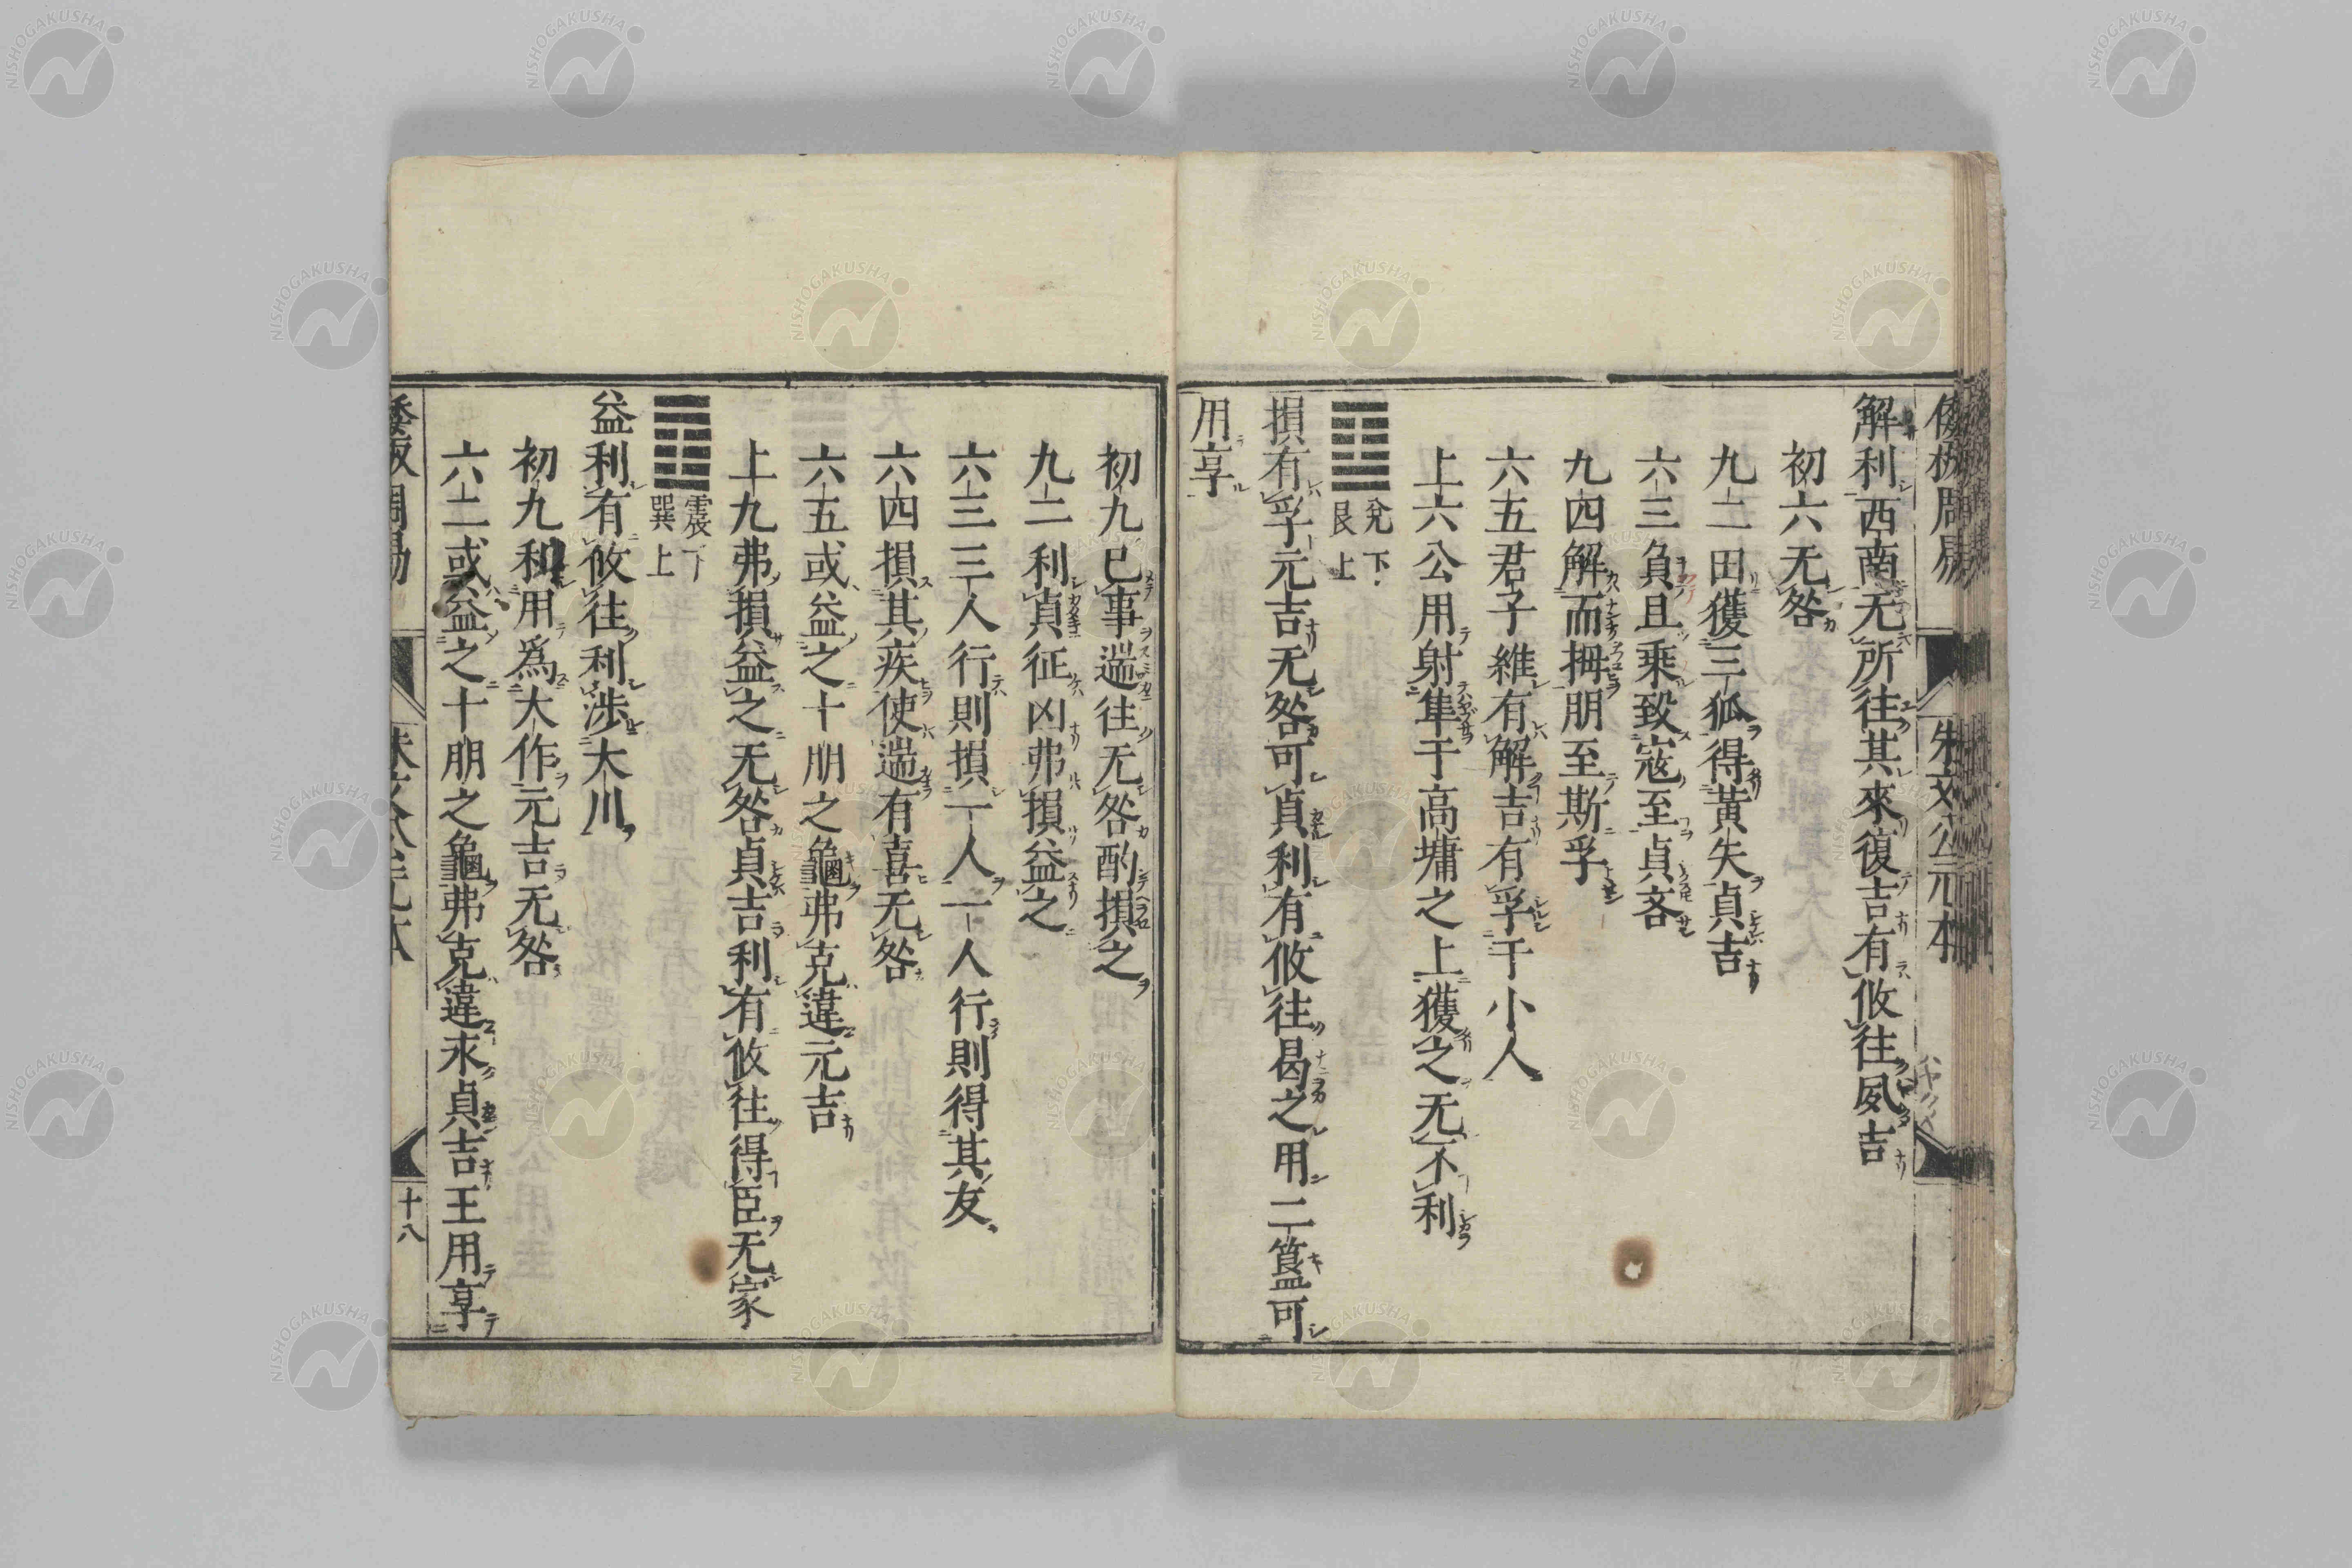 解利西南无所往其來復吉有攸往夙吉
初六无咎
九二田獲三狐得黃失貞吉
六三負且乘致寇至貞吝
九四解而拇朋至斯孚
六五君子維有解吉有孚于小人
上六公用射隼于高墉之上獲之无不利
兌下
艮上
損有孚元吉无咎可貞利有攸往曷之用二簋可
用享
初九已事遄往无咎酌損之
九二利貞征凶弗損益之
六三三人行則損一人一人行則得其友
六四損其疾使遄有喜无咎
六五或益之十朋之龜弗克違元吉
上九弗損益之无咎貞吉利有攸往得臣无家
震下
巽上
益利有攸往利涉大川
初九利用爲大作元吉无咎
六二或益之十朋之龜弗克違永貞吉王用享
十八
NISHOGAKUSHA